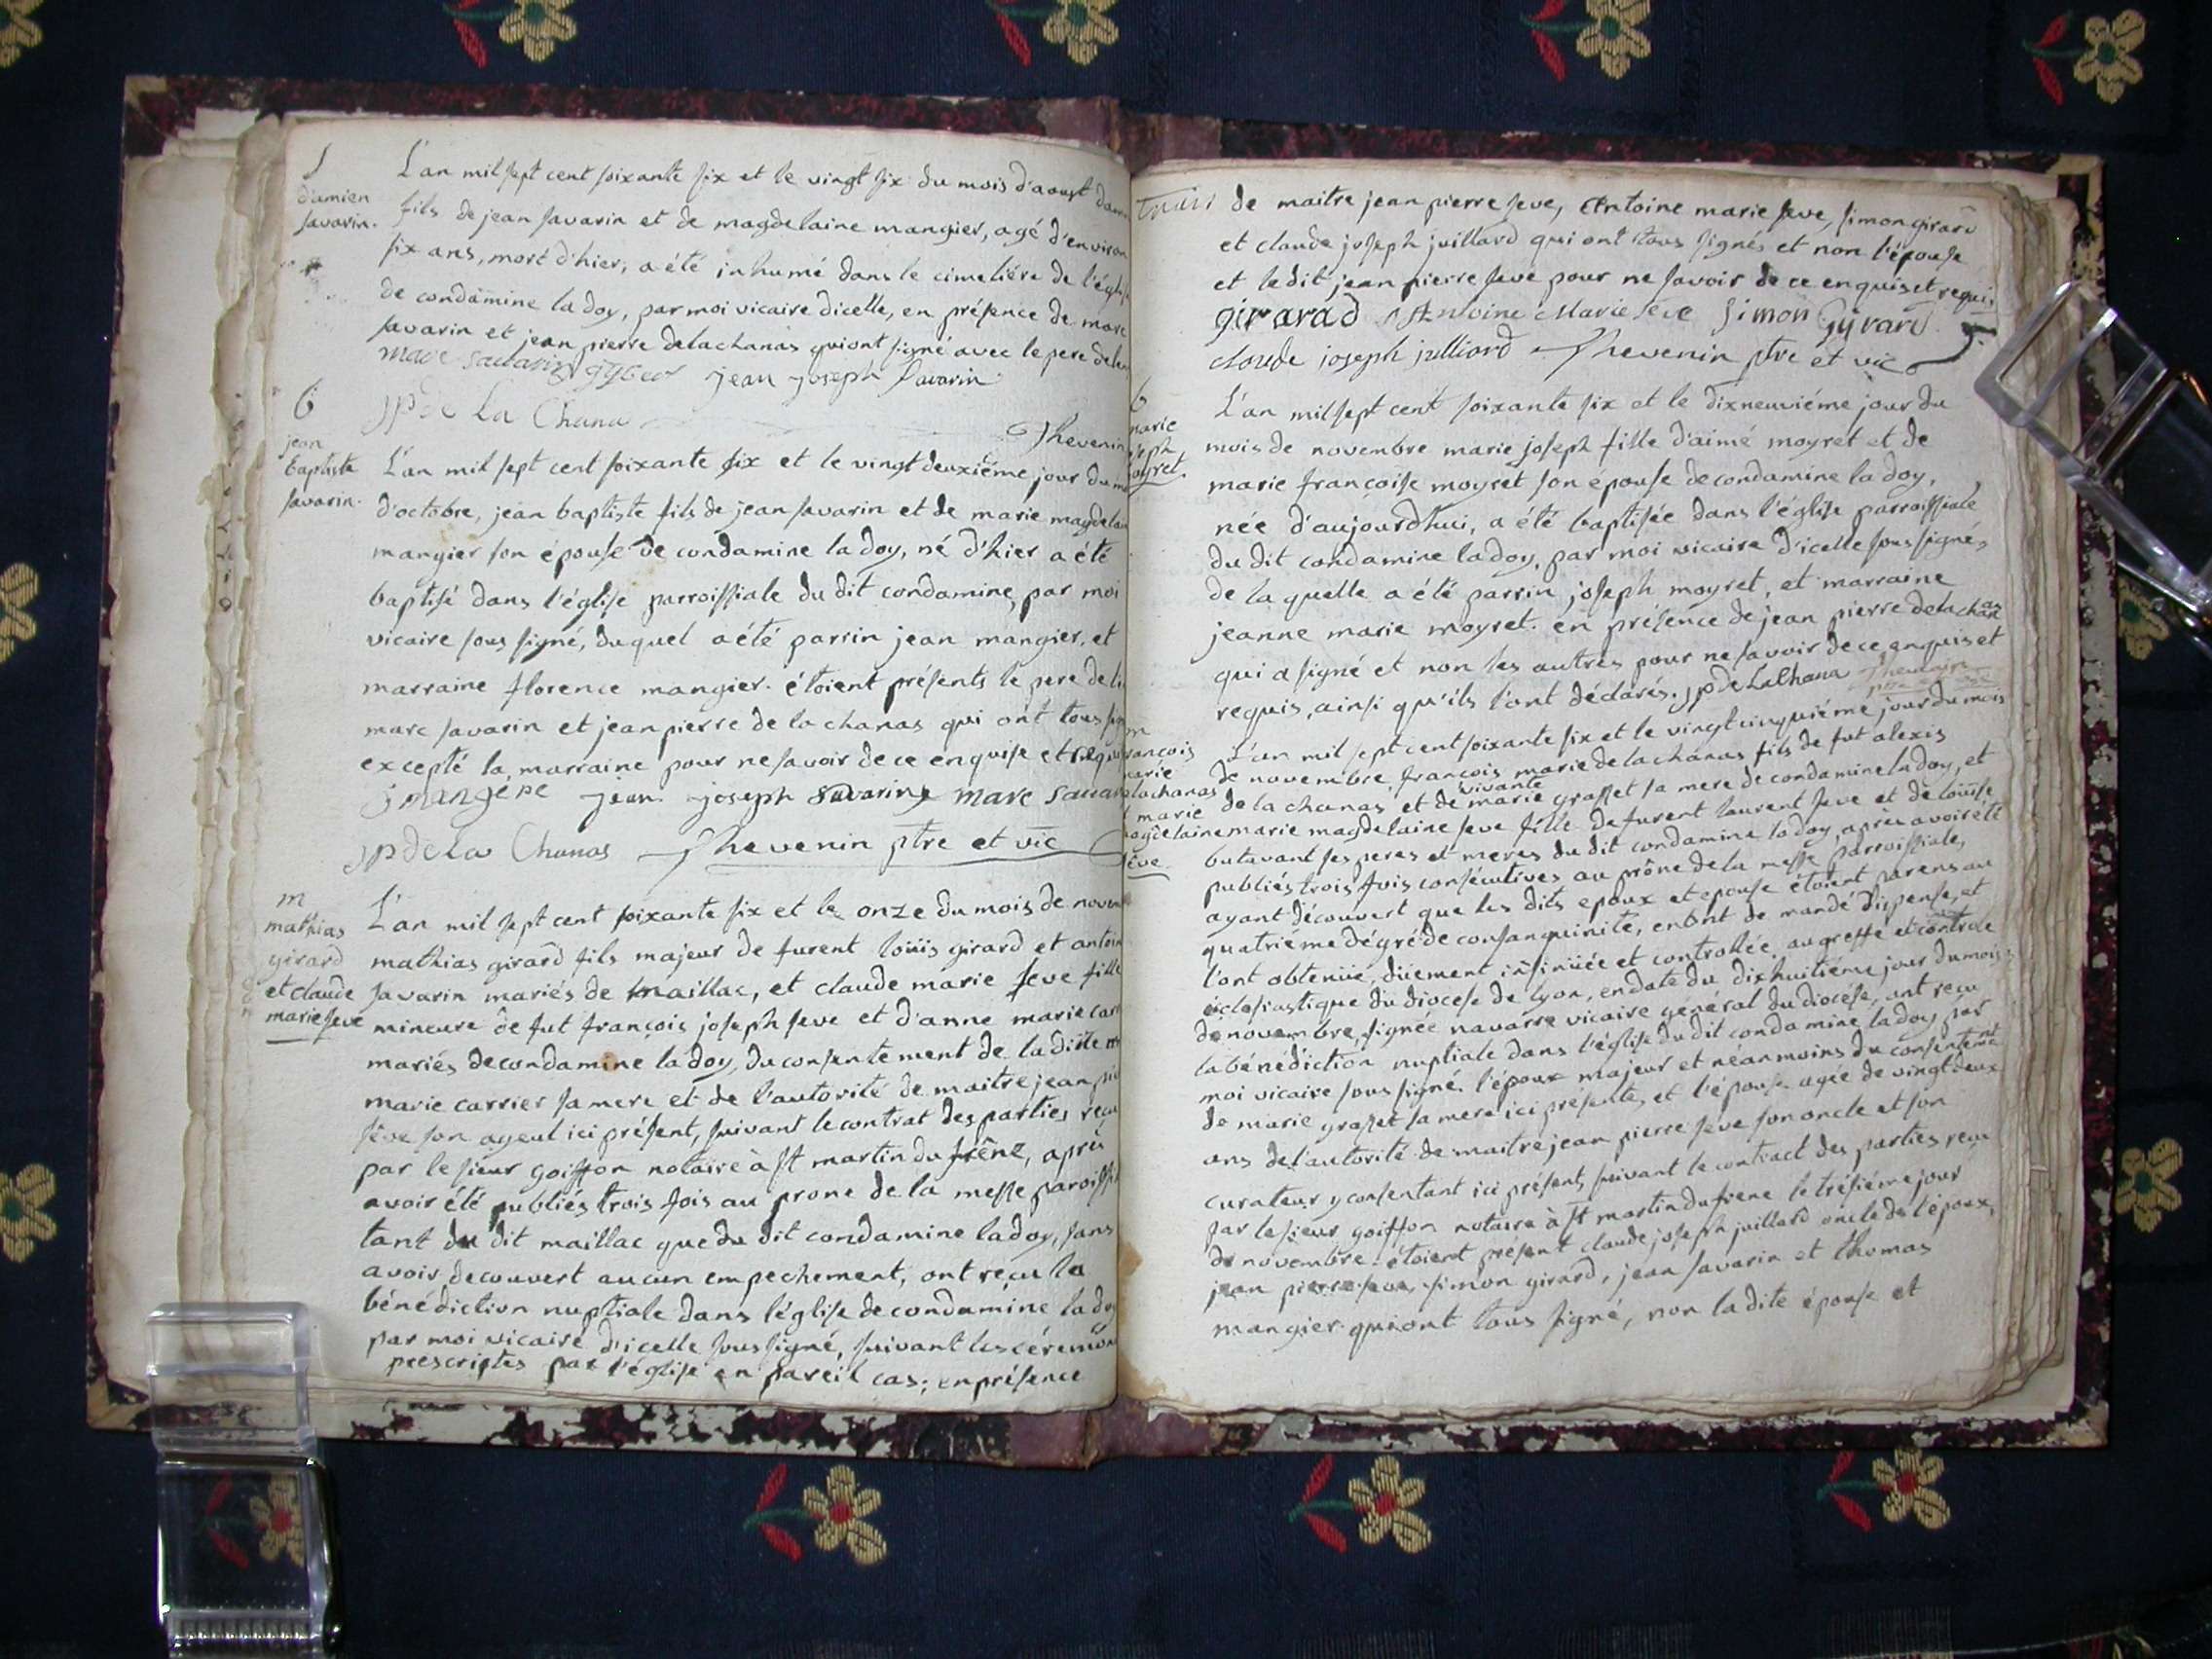 S
damien
savarin.
L'an mil sept cent soixante six et le vingt six du mois d'aoust
fils de jean savarin et de magdelaine mangier, agé d'environ
six ans, mort d'hier, a été inhumé dans le cimetiére de
de condamine la doy, par moi vicaire dicelle, en présence de marc
savarin et jean pierre delachanas qui ont signé avec le pere
marc savarin jean joseph savarin
jp de La Chana
Thevenin
b
jean
baptiste
savarin.
L'an mil sept cent soixante six et le vingt deuxiéme jour du
d'octobre, jean baptiste fils de jean savarin et de marie
mangier son épouse de condamine la doy, né d'hier a été
baptisé dans l'église parroissiale du dit condamine, par moi
vicaire sous signé, duquel a été parrin jean mangier, et
marraine florence mangier. étoient présents le pere
marc savarin et jean pierre de la chanas qui ont tous
excepté la marraine pour ne savoir de ce enquise et
jean joseph savarin marc
jp de La Chanas Thevenin ptre et vic
m
mathias
girard
et claude
marie seve
L'an mil sept cent soixante six et le onze du mois de
mathias girard fils majeur de furent loüis girard et
savarin mariés de maillac, et claude marie seve fille
mineure de fut françois joseph seve et d'anne marie
mariés de condamine la doy, du consentement de la dite
marie carrier sa mere et de l'autorité de maitre jean
séve son ayeul ici présent, suivant le contrat des parties
par le sieur goiffon notaire à st martin du frêne, aprés
avoir été publiés trois fois au prone de la messe
tant du dit maillac que du dit condamine la doy, sans
avoir decouvert aucun empechement, ont reçu la
bénédiction nuptiale dans l'église de condamine la doy
par moi vicaire d'icelle sous signé, suivant les
prescriptes par l'église en pareil cas; en présence
de maitre jean pierre seve, Antoine marie seve, simon girard
et claude joseph juillard qui ont tous signés et non l'épouse
et le dit jean pierre seve pour ne savoir de ce enquis et requis
girarad Antoine Marie seve Simon Gyrard
claude joseph julliard Thevenin ptre et vic
b
marie
L'an mil sept cent soixante six et le dix neuviéme jour du
mois de novembre marie joseph fille d'aimé moyret et de
marie françoise moyret son épouse de condamine la doy,
née d'aujourdhui, a été baptisée dans l'église parroissiale
du dit condamine la doy, par moi vicaire d'icelle sous signé,
de la quelle a été parrin joseph moyret, et marraine
jeanne marie moyret. en présence de jean pierre delachanas
qui a signé et non les autres pour ne savoir de ce enquis et
requis, ainsi qu'ils l'ont déclarés. jp de LaChana Thevenin
m
L'an mil sept cent soixante six et le vingt cinquiéme jour du mois
de novembre, françois marie delachanas fils de fut alexis
de la chanas et de vivante marie grasset sa mere de condamine la doy, et
marie magdelaine seve fille de furent laurent seve et de loüise
butavant ses peres et meres du dit condamine la doy, aprés avoir été
publiés trois fois consécutives au prône de la messe parroissiale,
ayant découvert que les dits epoux et epouse étoient parens au
quatriéme dégré de consanguinité, en ont demandé dispense, et
l'ont obtenüe, düement insinüée et controllée au greffe et controle
eclesiastique du diocese de lyon, en date du dix huitiéme jour du mois
de novembre, signée navarre vicaire général du diocése, ont reçu
la bénédiction nuptiale dans l'église du dit condamine la doy par
moi vicaire sous signé. l'époux majeur et néanmoins du consentement
de marie grasset sa mere ici présente, et l'épouse agée de vingt deux
ans de l'autorité de maitre jean pierre seve son oncle et son
curateur y consentant ici présent, suivant le contract des parties reçu
par le sieur goiffon notaire à st martin du frene le trésiéme jour
de novembre. étoient présent claude joseph juillard oncle de l'époux,
jean pierre seve, simon girard, jean savarin et thomas
mangier qui ont tous signé, non la dite épouse et